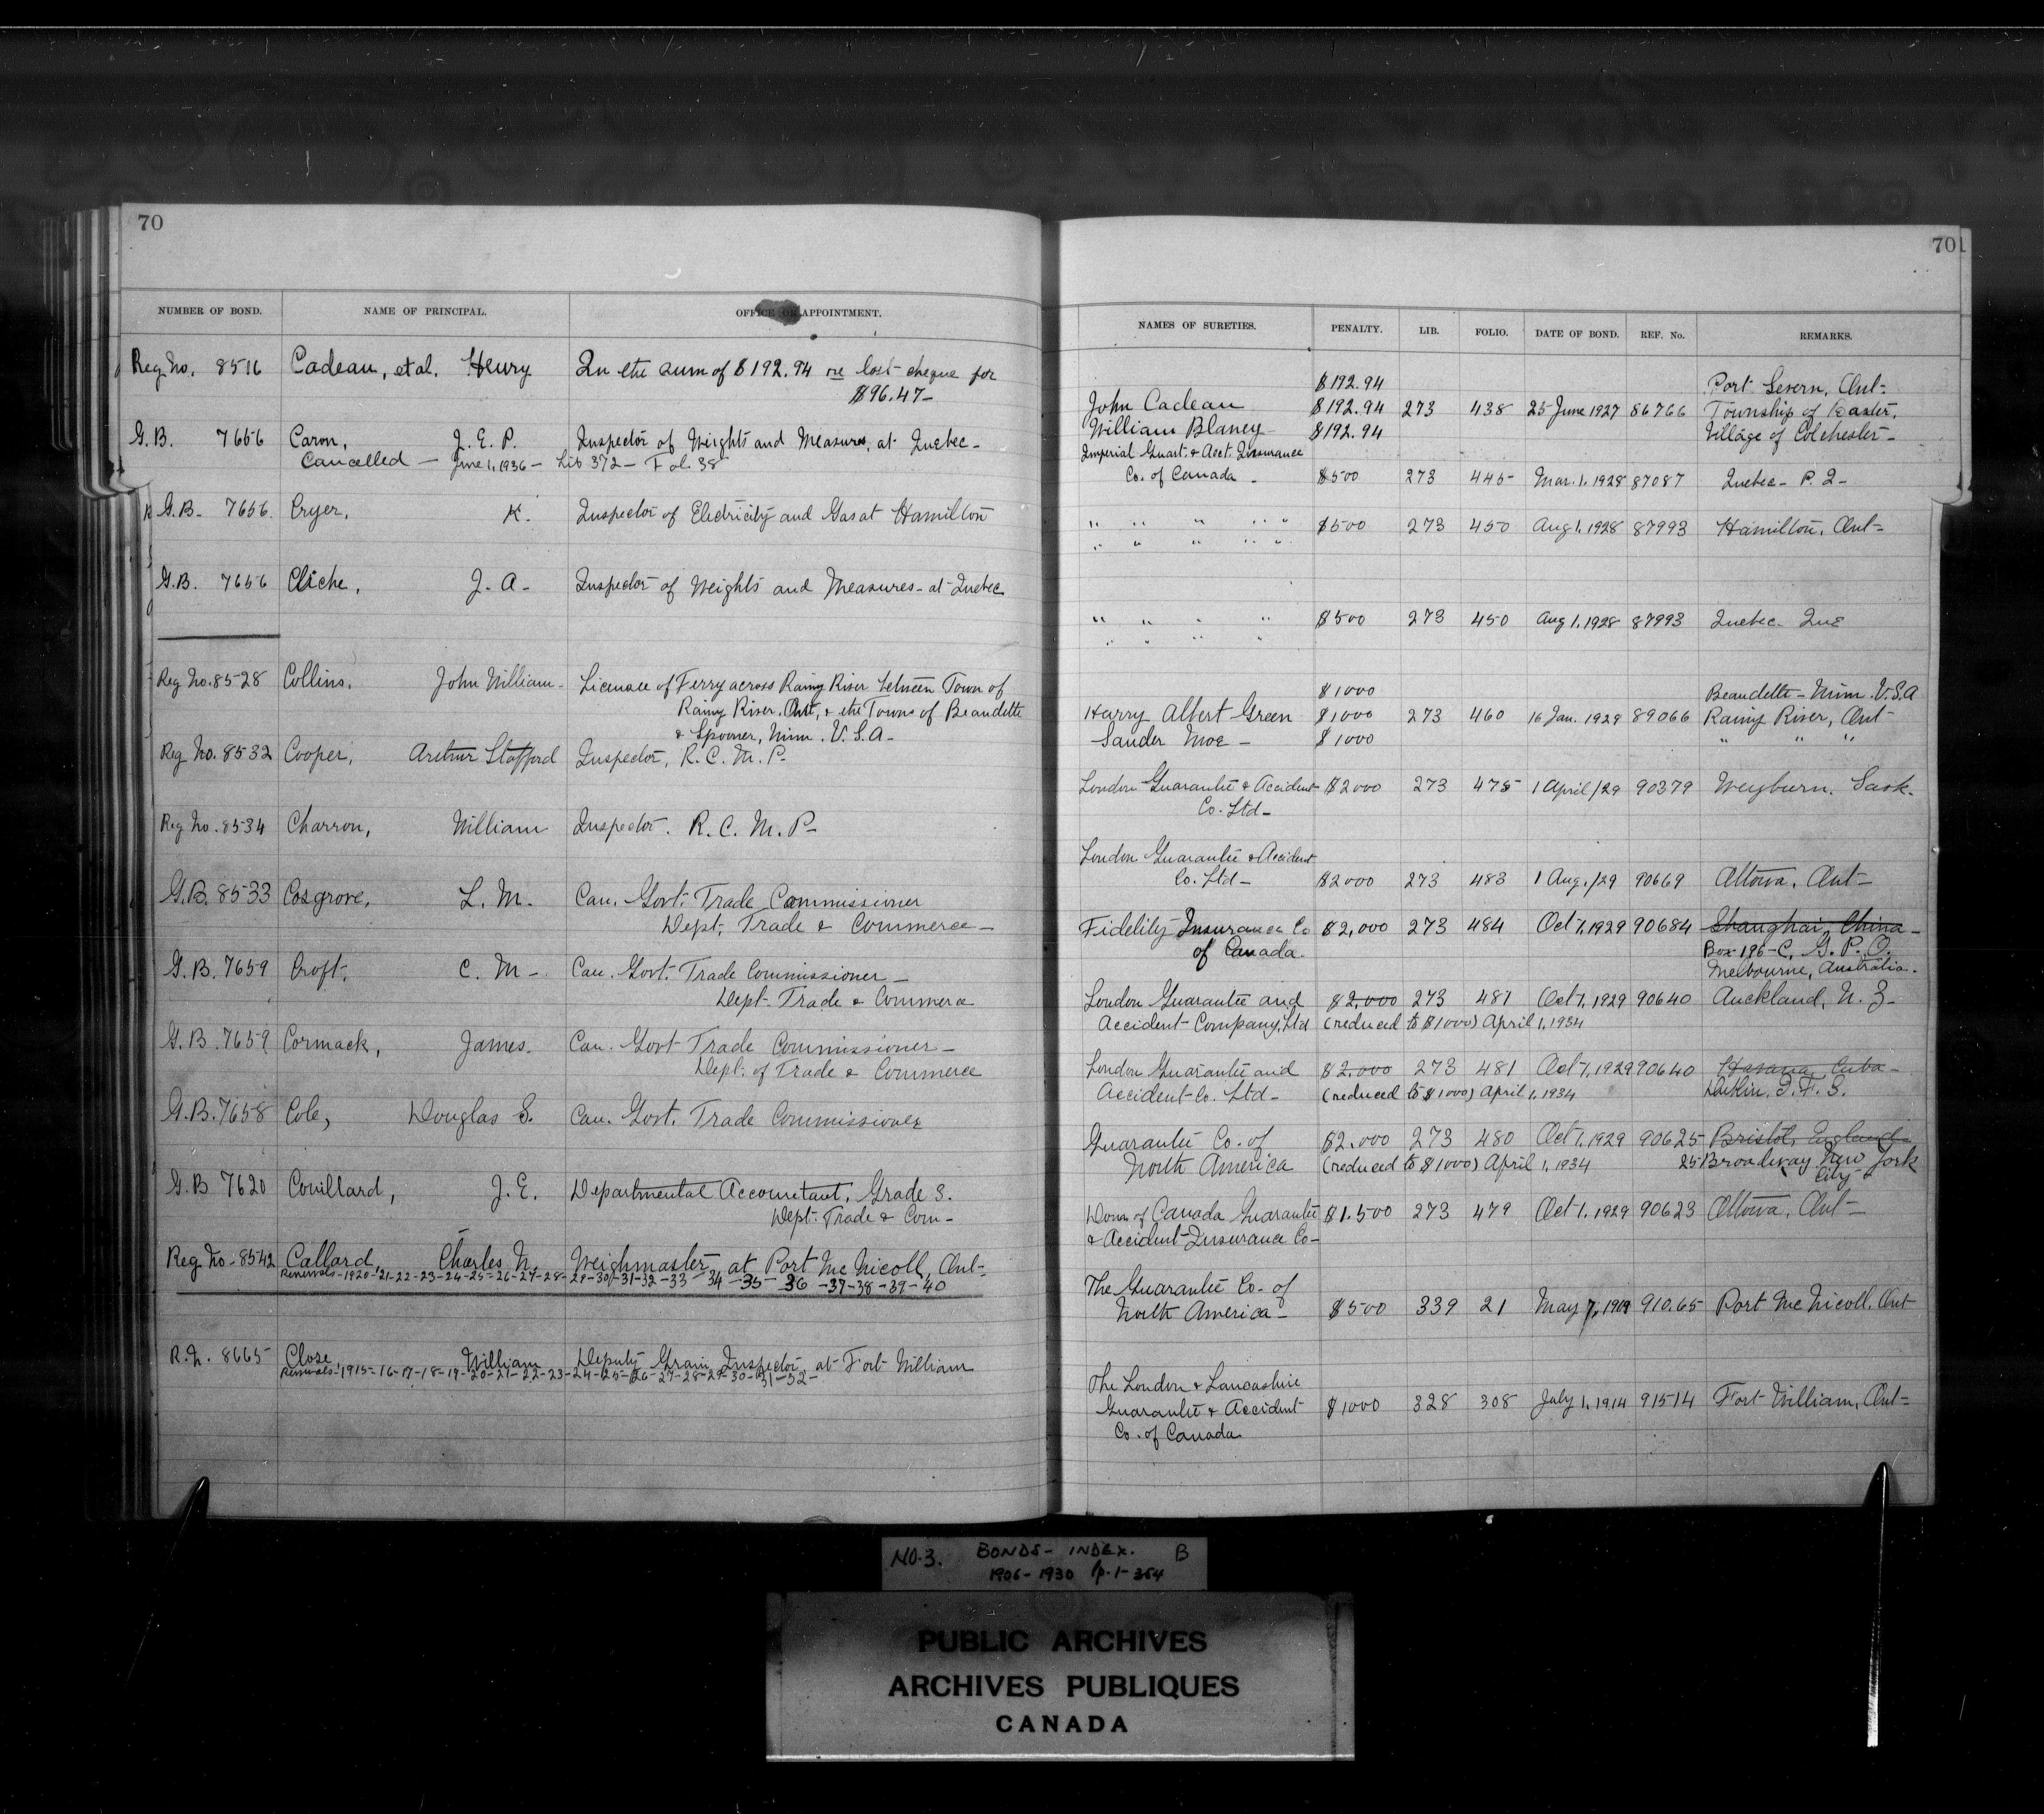 70
NUMBER OF BOND. NAME OF PRINCIPAL. OFFICE OR APPOINTMENT.
Reg. No. 8516 Cadeau, et al. Henry In the sum of $192.94 re lost cheque for
$96.47-
G.B. 7656 Caron, J. E. P. Inspector of Weights and Measures, at Quebec-
Cancelled - June 1, 1936 - Lib 372 - Fol. 38
G.B. 7656 Cryer, K. Inspector of Electricity and Gas at Hamilton
G.B. 7656 Cliche, J. A. Inspector of Weights and Measures - at Quebec
Reg No. 8528 Collins, John William- Licensee of Ferry across Rainy River between Town of
Rainy River, Ont, & the Towns of Beaudette
& Spooner, Minn. U.S.A-
Reg No. 8532 Cooper, Arthur Stafford Inspector, R.C.M.P-
Reg No. 8534 Charron, William Inspector. R.C.M.P-
G.B. 8533 Cosgrove, L. M. Can. Govt. Trade Commissioner
Dept. Trade & Commerce-
G.B. 7659 Croft, C. M- Can. Govt. Trade Commissioner-
Dept. Trade & Commerce
G.B. 7659 Cormack, James. Can. Govt Trade Commissioner-
Dept. of Trade & Commerce
G.B. 7658 Cole, Douglas S. Can. Govt. Trade Commissioner
G.B 7620 Couillard, J. E. Departmental Accountant, Grade 3.
Dept. Trade & Com-
Reg No-8542 Callard Charles N. Weighmaster, at Port McNicoll, Ont-
Renewals-1920-'21-22-23-24-25-26-27-28-29-30-31-32-33-34-35-36-37-38-39-40
R.N. 8665 Close William Deputy Grain Inspector, at Fort William
Renewals-'1915-16-17-18-19-20-21-22-23-24-25-26-27-28-29-30-31-32-
70
NAMES OF SURETIES. PENALTY. LIB. FOLIO. DATE OF BOND. REF. No. REMARKS.
$192.94 Port Severn, Ont-
John Cadeau $192.94 273 438 25 June 1927 86766 Township of Baxter,
William Blaney $192.94 Village of Colchester-
Imperial Guart. & Acct. Insurance
Co. of Canada - $500 273 445 Mar. 1. 1928 87087 Quebec - P. Q-
" " " " " $500 273 450 Aug 1. 1928 87993 Hamilton, Ont-
" " " " "
" " " " $500 273 450 Aug 1. 1928 87993 Quebec - Que
" " " "
$1000 Beaudette - Minn. U.S.A
Harry Albert Green $1000 273 460 16 Jan. 1929 89066 Rainy River, Ont-
Sander Moe - $1000 " " "
London Guarantee & Accident $2000 273 475 1 April/29 90379 Weyburn. Sask.
Co. Ltd-
London Guarantee & Accident
Co. Ltd- $2000 273 483 1 Aug./29 90669 Ottawa, Ont-
Fidelity Insurance Co $2,000 273 484 Oct 1, 1929 90684 Shanghai, China-
of Canada. Box 196-C, G.P.O.
Melbourne, Australia.
London Guarantee and $2,000 273 481 Oct 1, 1929 90640 Auckland, N. Z-
Accident Company, Ltd (reduced to $1000) April 1, 1934
London Guarantee and $2,000 273 481 Oct 1, 1929 90640 Havana, Cuba-
Accident Co. Ltd- (reduced to $1000) April 1, 1934 Dublin, I.F.S.
Guarantee Co. of $2,000 273 480 Oct 1, 1929 90625 Bristol, England-
North America (reduced to $1000) April 1, 1934 25 Broadway New York
City-
Dom of Canada Guarantee $1,500 273 479 Oct 1. 1929 90623 Ottawa, Ont-
& Accident Insurance Co-
The Guarantee Co. of
North America- $500 339 21 May 7, 1919 91065 Port McNicoll, Ont
The London & Lancashire
Guarantee & Accident $1000 328 308 July 1, 1914 91514 Fort William, Ont-
Co. of Canada
NO.3. BONDS - INDEX. B
1906-1930 p.1-354
PUBLIC ARCHIVES
ARCHIVES PUBLIQUES
CANADA